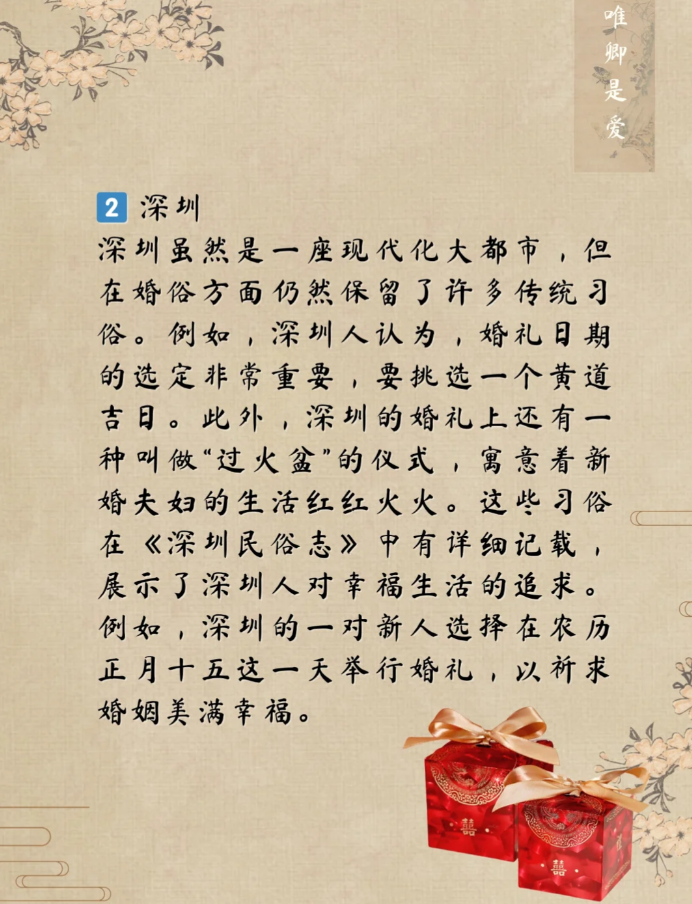 唯卿是爱
2 深圳
深圳虽然是一座现代化大都市，但
在婚俗方面仍然保留了许多传统习
俗。例如，深圳人认为，婚礼日期
的选定非常重要，要挑选一个黄道
吉日。此外，深圳的婚礼上还有一
种叫做“过火盆”的仪式，寓意着新
婚夫妇的生活红红火火。这些习俗
在《深圳民俗志》中有详细记载，
展示了深圳人对幸福生活的追求。
例如，深圳的一对新人选择在农历
正月十五这一天举行婚礼，以祈求
婚姻美满幸福。
囍
囍